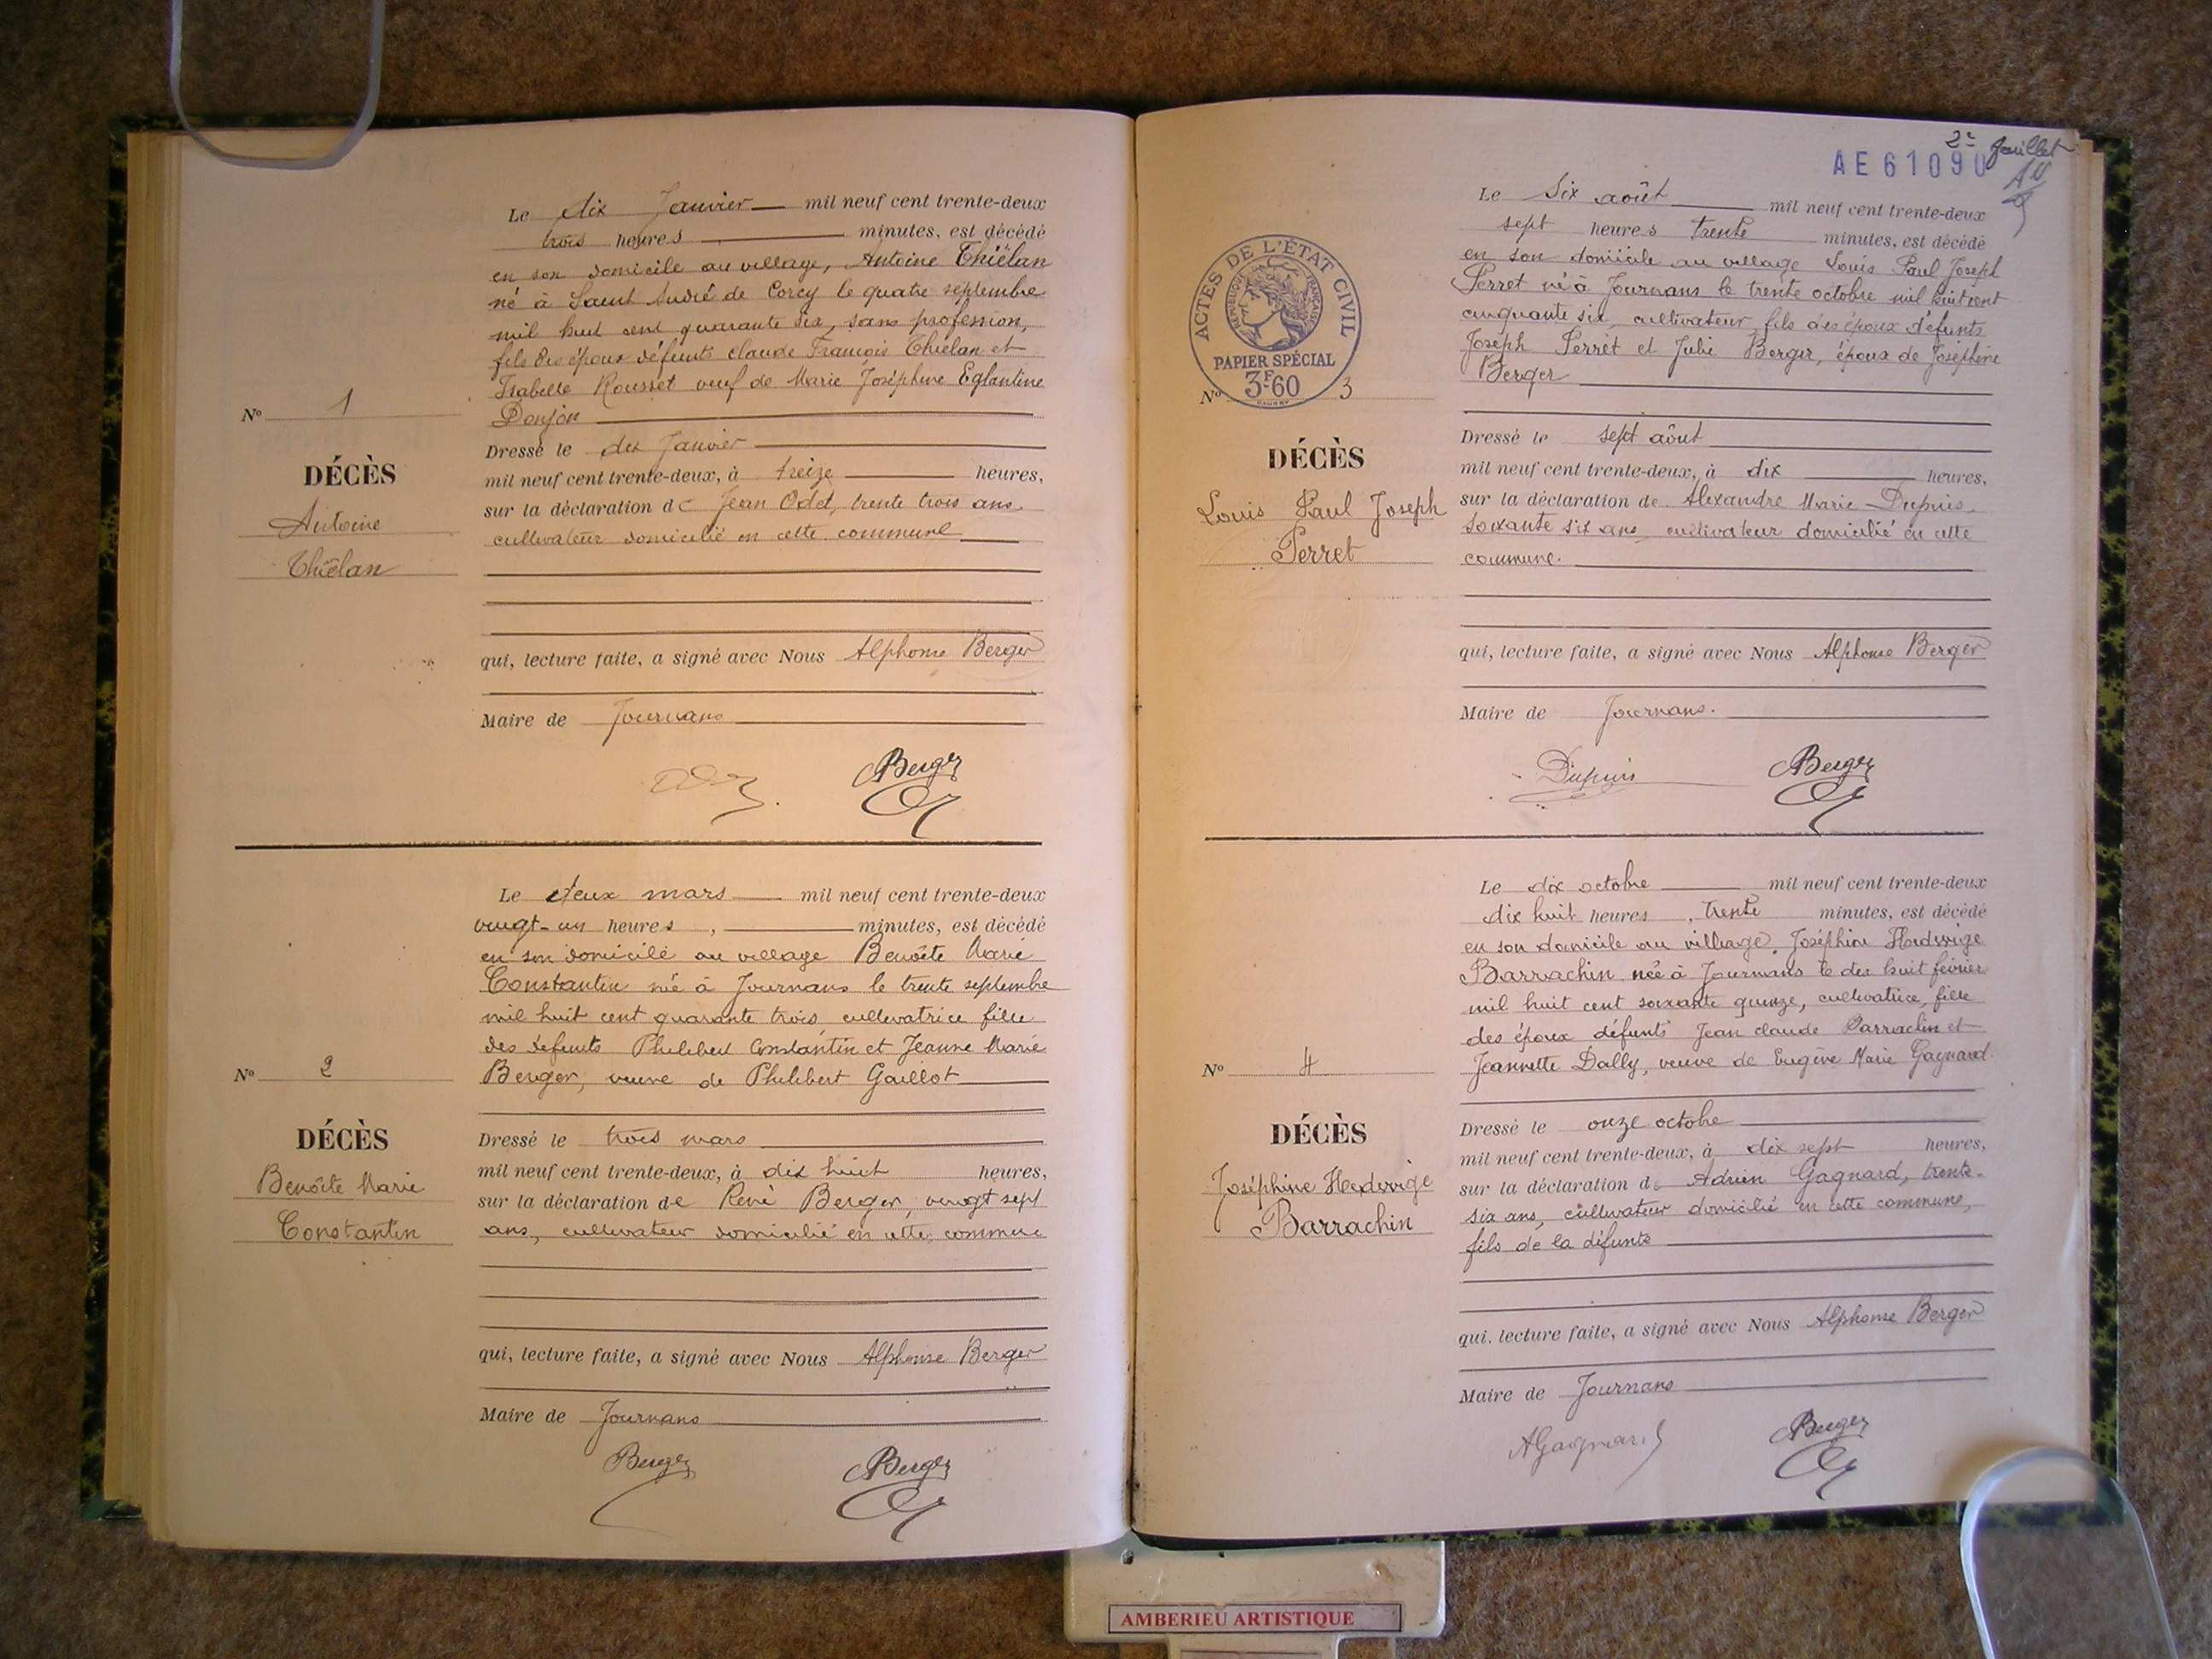 Le dix Janvier mil neuf cent trente-deux
trois heures minutes, est décédé
en son domicile au village, Antoine Thiélan
né à Saint André de Corcy le quatre septembre
mil huit cent quarante six, sans profession,
fils des époux défunts Claude François Thiélan et
Isabelle Rousset veuf de Marie Joséphine Eglantine
Donjon
Nº 1
DÉCÈS
Antoine
Thiélan
Dressé le dix Janvier
mil neuf cent trente-deux, à treize heures,
sur la déclaration de Jean Odet, trente trois ans
cultivateur domicilié en cette commune
qui, lecture faite, a signé avec Nous Alphonse Berger
Maire de Journans
Berger
Le deux mars mil neuf cent trente-deux
vingt-un heures, minutes, est décédé
en son domicile au village Benoîte Marie
Constantin née à Journans le trente septembre
mil huit cent quarante trois, cultivatrice fille
des défunts Philibert Constantin et Jeanne Marie
Berger, veuve de Philibert Gaillot
Nº 2
DÉCÈS
Benoîte Marie
Constantin
Dressé le trois mars
mil neuf cent trente-deux, à dix huit heures,
sur la déclaration de René Berger, vingt sept
ans, cultivateur domicilié en cette commune
qui, lecture faite, a signé avec Nous Alphonse Berger
Maire de Journans
Berger Berger
2e feuillet
AE 61090
Le Six août mil neuf cent trente-deux
sept heures trente minutes, est décédé
en son domicile au village Louis Paul Joseph
Perret né à Journans le trente octobre mil huit cent
cinquante six, cultivateur, fils des époux défunts
Joseph Perret et Julie Berger, époux de Joséphine
Berger
ACTES DE L'ÉTAT CIVIL
RÉPUBLIQUE FRANÇAISE
PAPIER SPÉCIAL
3F.60
Nº 3
DÉCÈS
Louis Paul Joseph
Perret
Dressé le sept août
mil neuf cent trente-deux, à dix heures,
sur la déclaration de Alexandre Marie Dupuis
soixante six ans, cultivateur domicilié en cette
commune.
qui, lecture faite, a signé avec Nous Alphonse Berger
Maire de Journans.
Dupuis Berger
Le dix octobre mil neuf cent trente-deux
dix huit heures, trente minutes, est décédé
en son domicile au village, Joséphine Hedwige
Barrachin née à Journans le dix huit février
mil huit cent soixante quinze, cultivatrice, fille
des époux défunts Jean Claude Barrachin et
Jeannette Dally, veuve de Eugène Marie Gagnard.
Nº 4
DÉCÈS
Joséphine Hedwige
Barrachin
Dressé le onze octobre
mil neuf cent trente-deux, à dix sept heures,
sur la déclaration de Adrien Gagnard, trente-
six ans, cultivateur domicilié en cette commune,
fils de la défunte
qui, lecture faite, a signé avec Nous Alphonse Berger
Maire de Journans
AGagnard Berger
AMBERIEU ARTISTIQUE